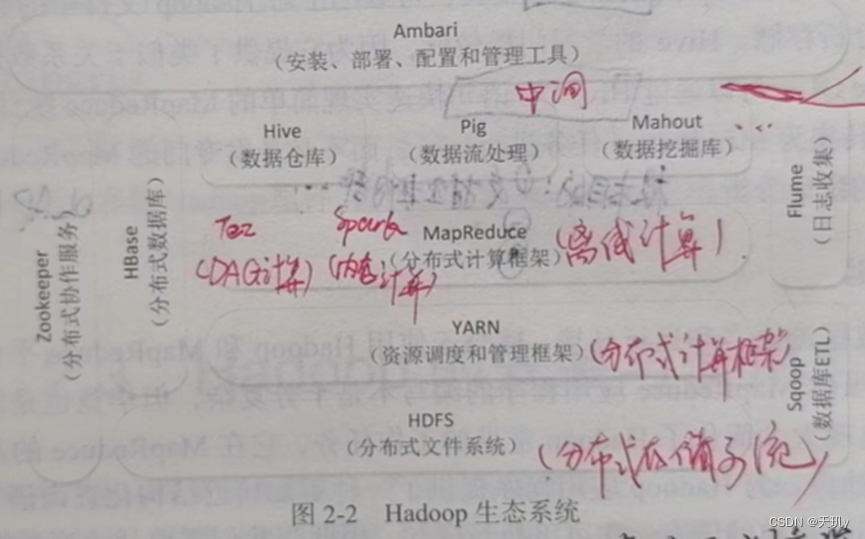 Ambari
(安装、部署、配置和管理工具)
中间
Hive
(数据仓库)
Pig
(数据流处理)
Mahout
(数据挖掘库)
...
Flume
(日志收集)
Zookeeper
(分布式协作服务)
HBase
(分布式数据库)
Tez
(DAG计算)
Spark
(内存计算)
MapReduce
(分布式计算框架)
(离线计算)
YARN
(资源调度和管理框架)
(分布式计算框架)
Sqoop
(数据库ETL)
HDFS
(分布式文件系统)
(分布式存储系统)
图 2-2 Hadoop 生态系统
CSDN @天玑ly